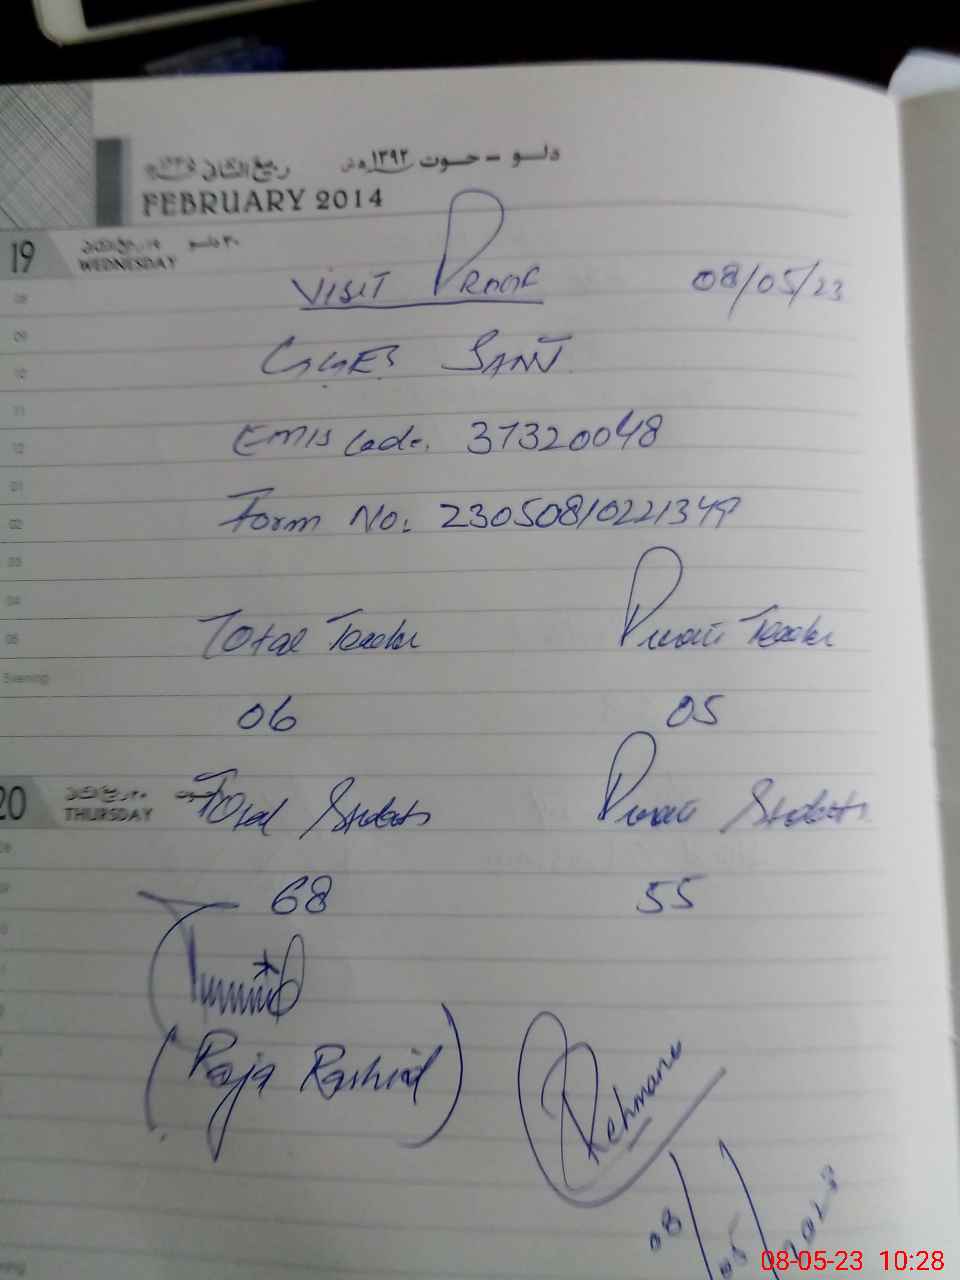 دلو - حوت ۱۳۹۲ ه ش ربیع الثانی ۱۴۳۵ ه
FEBRUARY 2014
19
WEDNESDAY
VISIT PROOF 08/05/23
GGES SANJ
EMIS Code. 37320048
Form No: 23050810221349
Total Teacher Present Teacher
06 05
20 THURSDAY
Total Students Present Students
68 55
(Raja Rashid)
Rehmana
08/05/2023
08
09
10
11
12
01
02
03
04
05
Evening
08-05-23 10:28